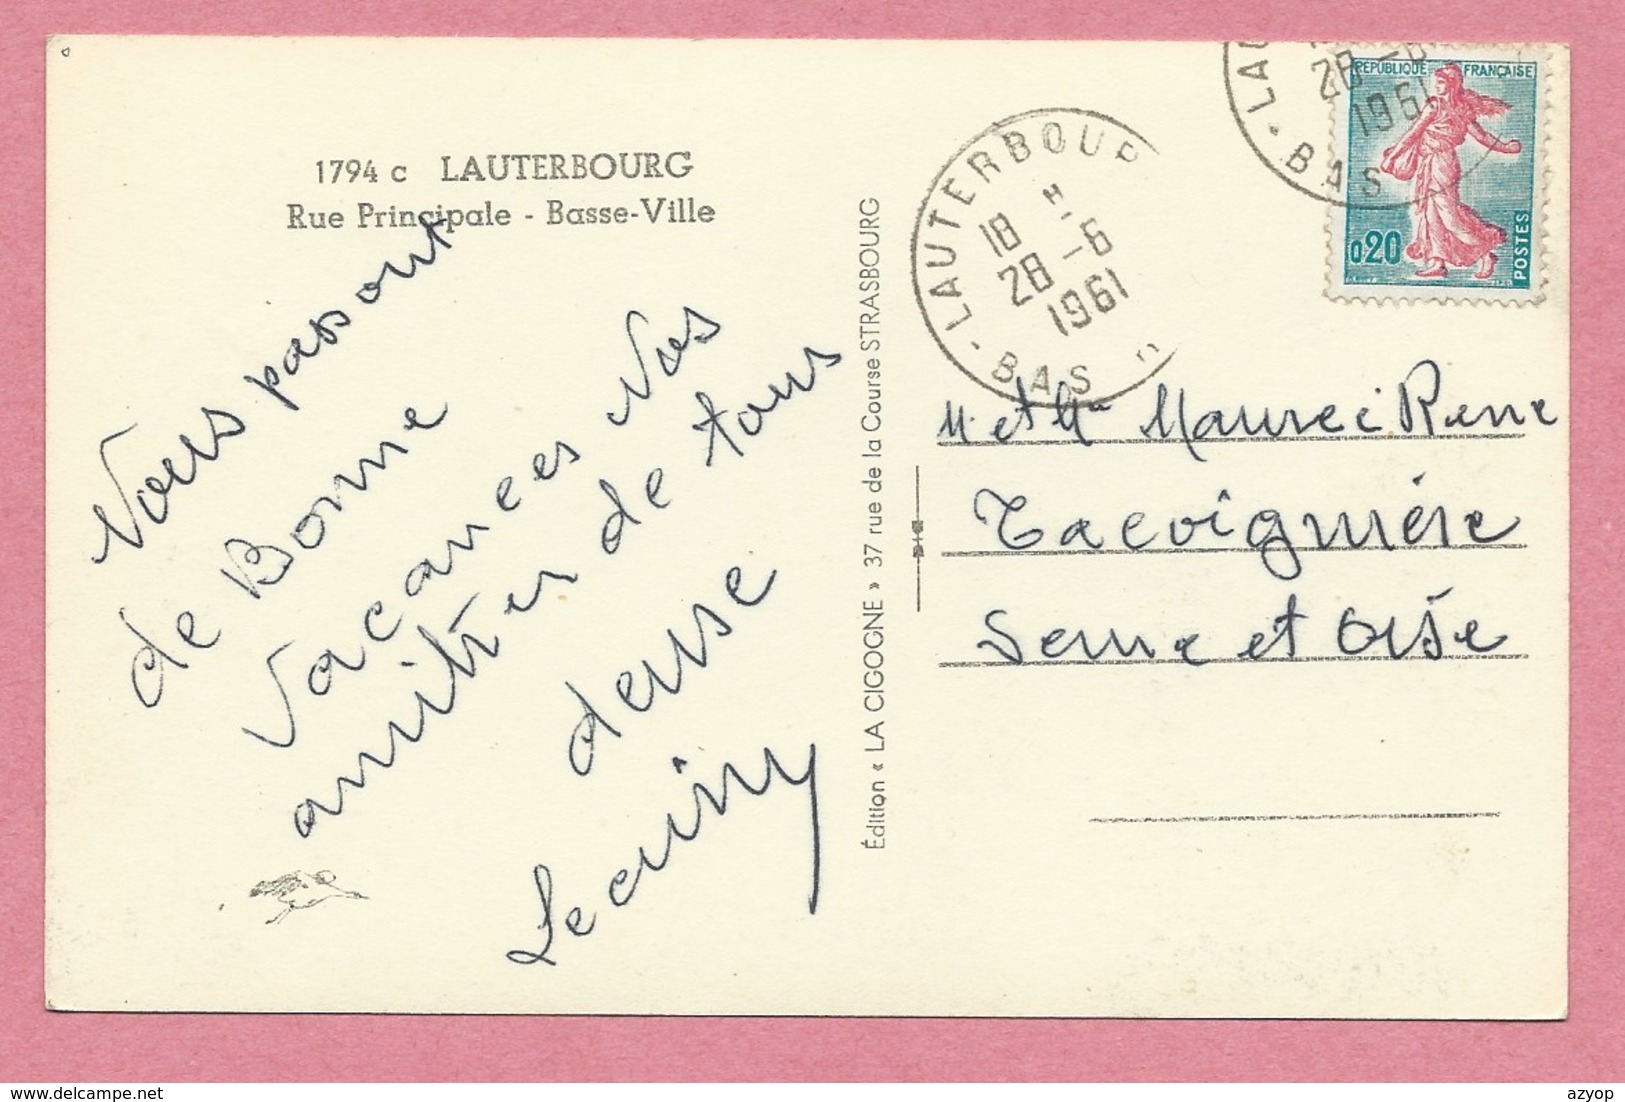 1794 c LAUTERBOURG
Rue Principale - Basse-Ville
Nous passont
de Bonne
Vacances Nos
amitiés de tous
Édition « LA CIGOGNE » 37 rue de la Course STRASBOURG
LAUTERBOUR
18 H
28 -6
1961
- BAS R
LAU
28 -6
1961
- BAS
RÉPUBLIQUE FRANÇAISE
0,20
POSTES
M. et Mme Maurice Rene
Tacoignière
Seine et Oise
azyop